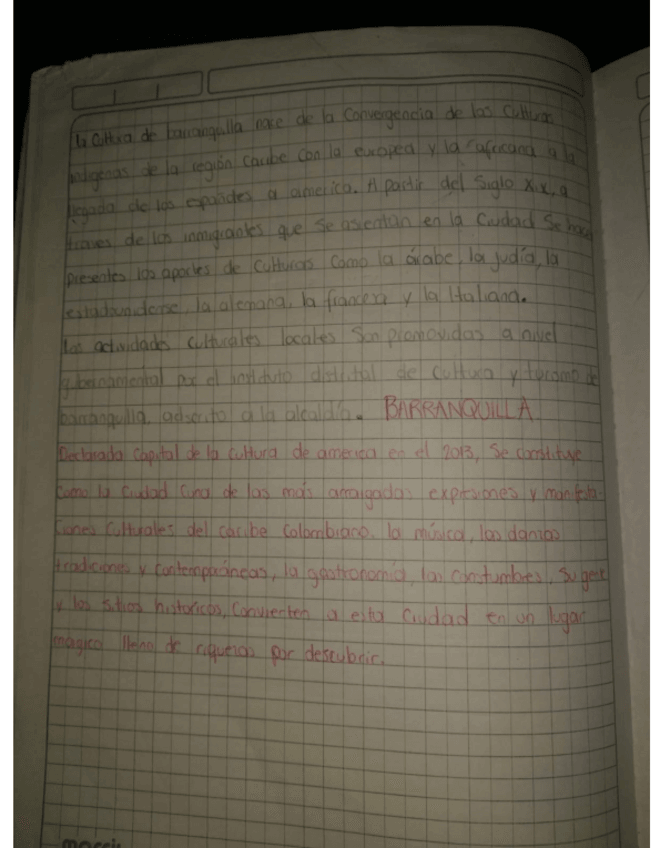 la Cultura de barranquilla nace de la Convergencia de las Culturas
indígenas de la región caribe con la europea y la africana a la
llegada de los españoles a america. A partir del Siglo X.x, a
traves de los inmigrantes que se asientan en la Ciudad se hacen
presentes los aportes de Culturas Como la árabe, la judía, la
estadounidense, la alemana, la francesa y la italiana.
las actividades Culturales locales Son promovidas a nivel
gubernamental por el instituto distrital de Cultura y turismo de
barranquilla, adscrito a la alcaldía. BARRANQUILLA
Declarada Capital de la cultura de america en el 2013, Se constituye
como la Ciudad Cuna de las más arraigadas expresiones y manifesta-
ciones Culturales del caribe Colombiano. la música, las danzas
tradiciones y Contemporáneas, la gastronomía, las constumbres, Su gente
y los sitios históricos, Convierten a esta Ciudad en un lugar
mágico lleno de riquezas por descubrir.